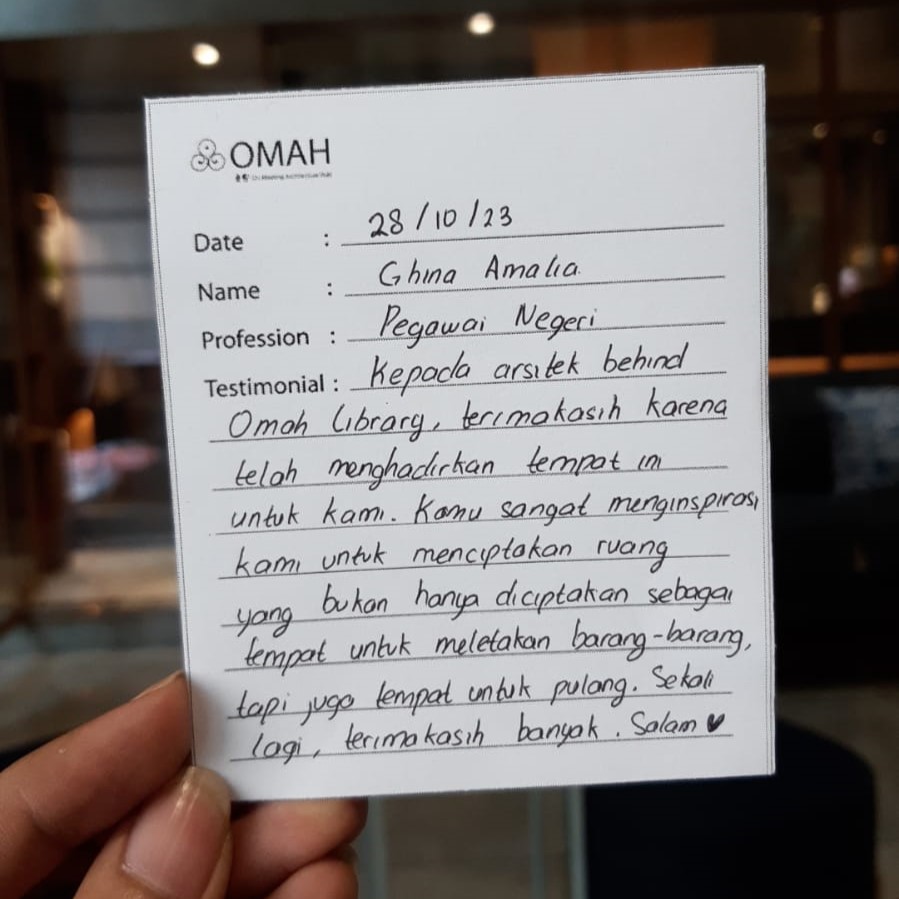 OMAH
Date : 28/10/23
Name : Ghina Amalia
Profession : Pegawai Negeri
Testimonial : Kepada arsitek behind
Omah library, terimakasih karena
telah menghadirkan tempat ini
untuk kami. Kamu sangat menginspirasi
kami untuk menciptakan ruang
yang bukan hanya diciptakan sebagai
tempat untuk meletakan barang-barang,
tapi juga tempat untuk pulang. Sekali
lagi, terimakasih banyak. Salam ♥